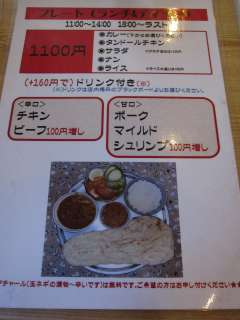 プレート（ランチ&ディナー）
11:00～14:00　18:00～ラスト
1100円
◆カレー
◆タンドールチキン
◆サラダ
◆ナン
◆ライス
（+160円で）ドリンク付き（※）
（※）ドリンクは店内掲示のブラックボードよりお選びください。
＜辛口＞
チキン
ビーフ100円増し
＜甘口＞
ポーク
マイルド
シュリンプ100円増し
アチャール（玉ネギの漬物～辛いです）は無料です。ご希望の方はお申し付けください★